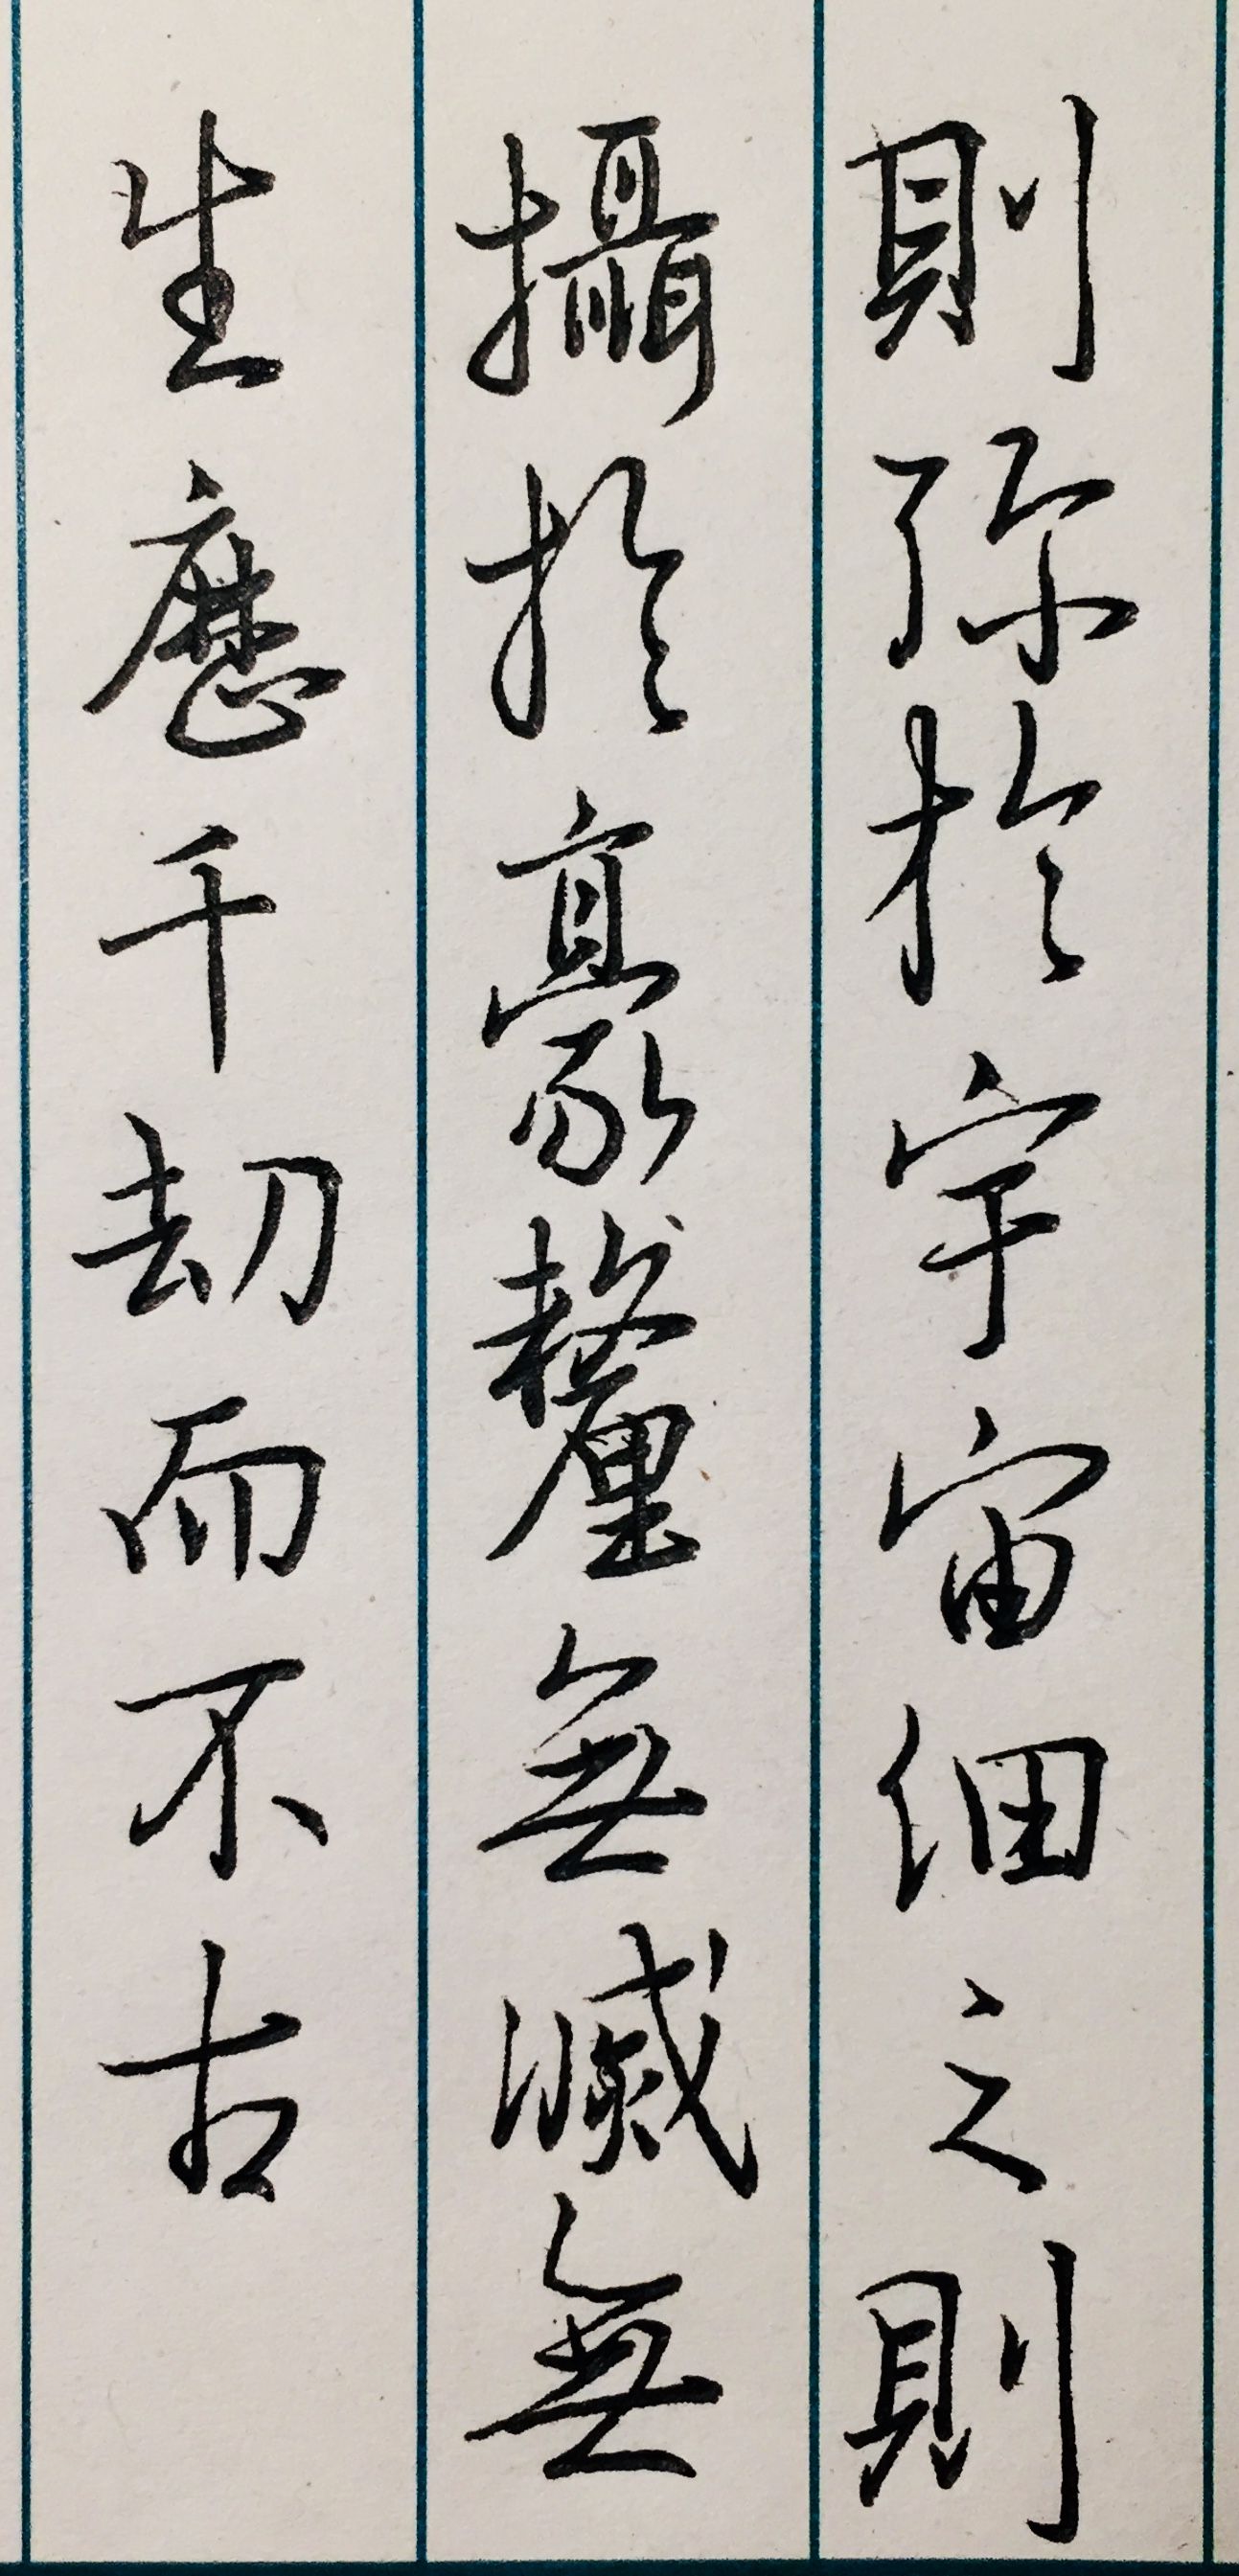 則弥於宇宙細之則
攝於豪氂無滅無
生歷千劫而不古